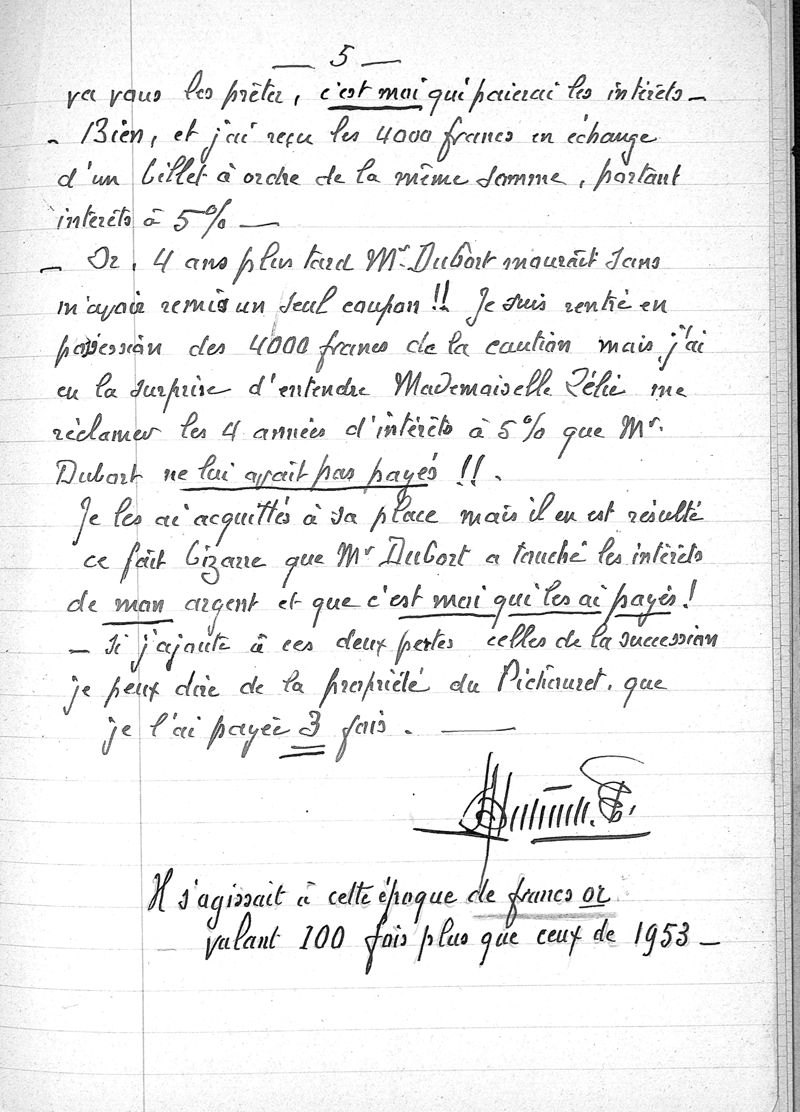 — 5 —
va vous les prêter, c'est moi qui paierai les intérêts —
- Bien, et j'ai reçu les 4000 francs en échange
d'un billet à ordre de la même somme, portant
intérêts à 5% —
— Or, 4 ans plus tard Mr. Dubort mourait sans
m'avoir remis un seul coupon !! Je suis rentré en
possession des 4000 francs de la caution mais j'ai
eu la surprise d'entendre Mademoiselle Zélie me
réclamer les 4 années d'intérêts à 5% que Mr.
Dubort ne lui avait pas payés !!.
Je les ai acquittés à sa place mais il en est résulté
ce fait bizarre que Mr Dubort a touché les intérêts
de mon argent et que c'est moi qui les ai payés !
— Si j'ajoute à ces deux pertes celles de la succession
je peux dire de la propriété du Pichauret, que
je l'ai payée 3 fois. —
Il s'agissait à cette époque de francs or
valant 100 fois plus que ceux de 1953 —